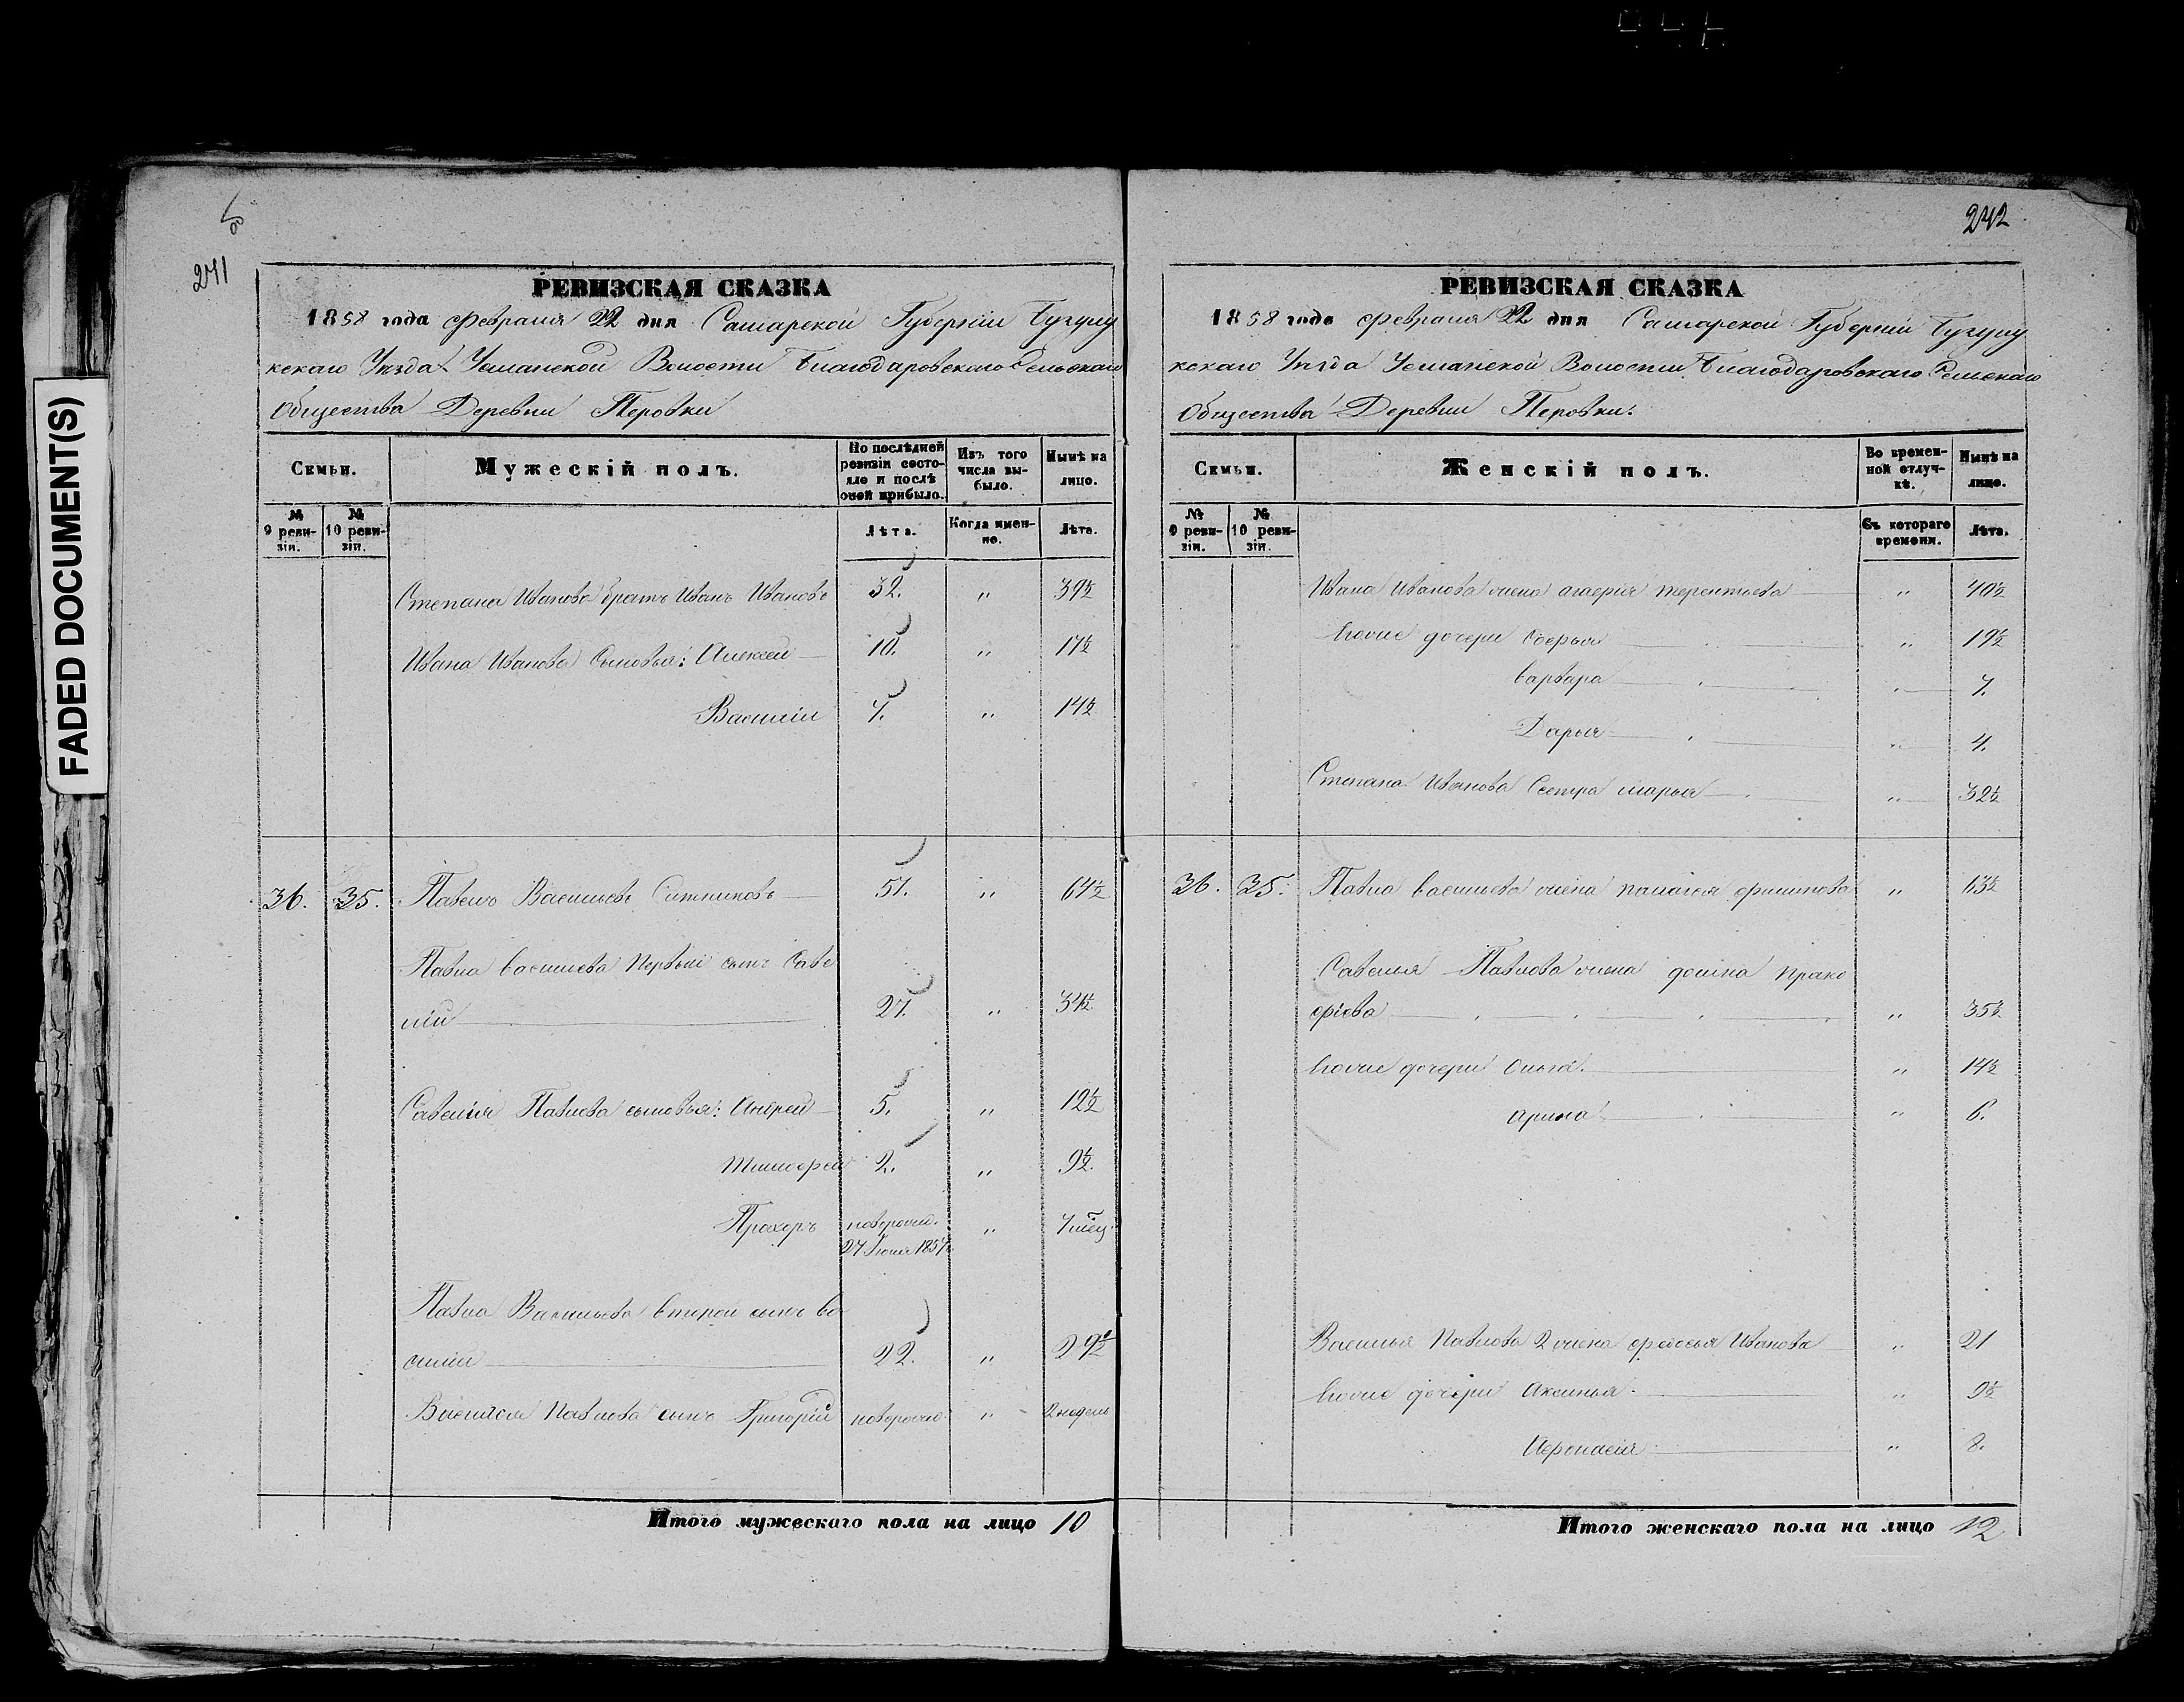 FADED DOCUMENT(S)
241
РЕВИЗСКАЯ СКАЗКА
1858 года Февраля 22 дня Самарской Губернiи Бугуру
скаго Уѣзда Усманской Волости Благодаровскаго Сельскаго
Общества Деревни Перовки
Семьи.
Мужескій полъ.
По послѣдней ревизіи состояло и послѣ оной прибыло.
Изъ того числа выбыло.
Нынѣ на лицо.
№ 9 ревизіи.
№ 10 ревизіи.
Лѣта.
Когда именно.
Лѣта.
Степана Иванова братъ Иванъ Ивановъ 32. " 39½
Ивана Иванова Сыновья: Алексей 10. " 17½
Василiи 7. " 14½
36. 35. Павелъ Васильевъ Ситниковъ 57. " 64½
Павла Васильева Первый сынъ Саве
лiй 27. " 34½
Савелiя Павлова сыновья: Андрей 5. " 12½
Тимофей 2. " 9½
Прохоръ новорож. " 7 мѣс
27 Iюля 1857
Павла Васильева второй сынъ Ва
силiи 22. " 29½
Василiя Павлова сынъ Григорiй новорожд " 2 недѣль
Итого мужескаго пола на лицо 10
242
РЕВИЗСКАЯ СКАЗКА
1858 года Февраля 22 дня Самарской Губернiи Бугуру
скаго Уѣзда Усманской Волости Благодаровскаго Сельскаго
Общества Деревни Перовки.
Семьи.
Женскій полъ.
Во временной отлучкѣ.
Нынѣ на лицо.
№ 9 ревизіи.
№ 10 ревизіи.
Съ котораго времени.
Лѣта.
Ивана Иванова жена Агафия Терентьева " 40½
Ихъ дочери Софья " 19½
Варвара " 7.
Дарья " 4.
Степана Иванова Сестра Марья " 32½
36. 35. Павла Васильева жена Палагея Филипова " 63½
Савелья Павлова жена Домна Проко
фiева " 35½
дочери Ольга. " 14½
Арина " 6.
Василья Павлова 2 жена Федосья Иванова " 21
дочери Аксинья. " 9½
Афонасия " 8.
Итого женскаго пола на лицо 12